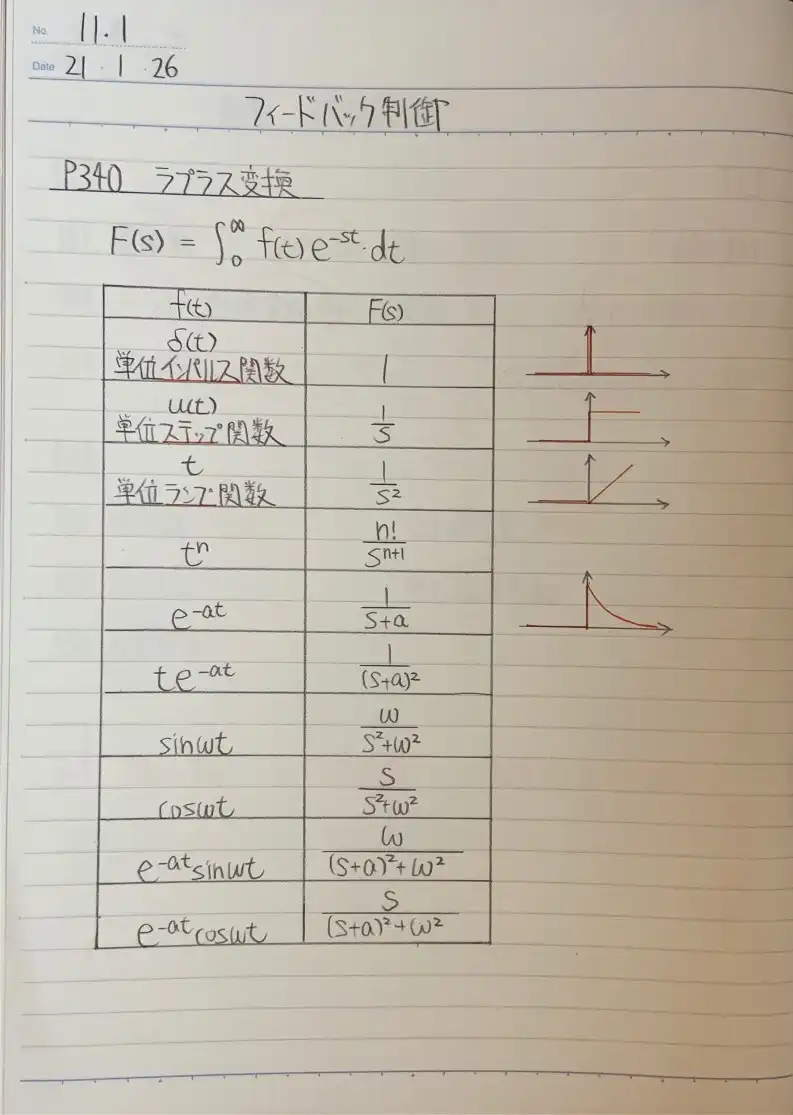 No. 11.1
Date 21・1・26
フィードバック制御
P340 ラプラス変換
F(s) = ∫₀^∞ f(t) e^-st・dt
f(t) F(s)
δ(t)
単位インパルス関数 1
u(t)
単位ステップ関数 1/s
t
単位ランプ関数 1/s²
t^n n!/s^n+1
e^-at 1/s+a
te^-at 1/(s+a)²
sinωt ω/s²+ω²
cosωt s/s²+ω²
e^-at sinωt ω/(s+a)²+ω²
e^-at cosωt s/(s+a)²+ω²